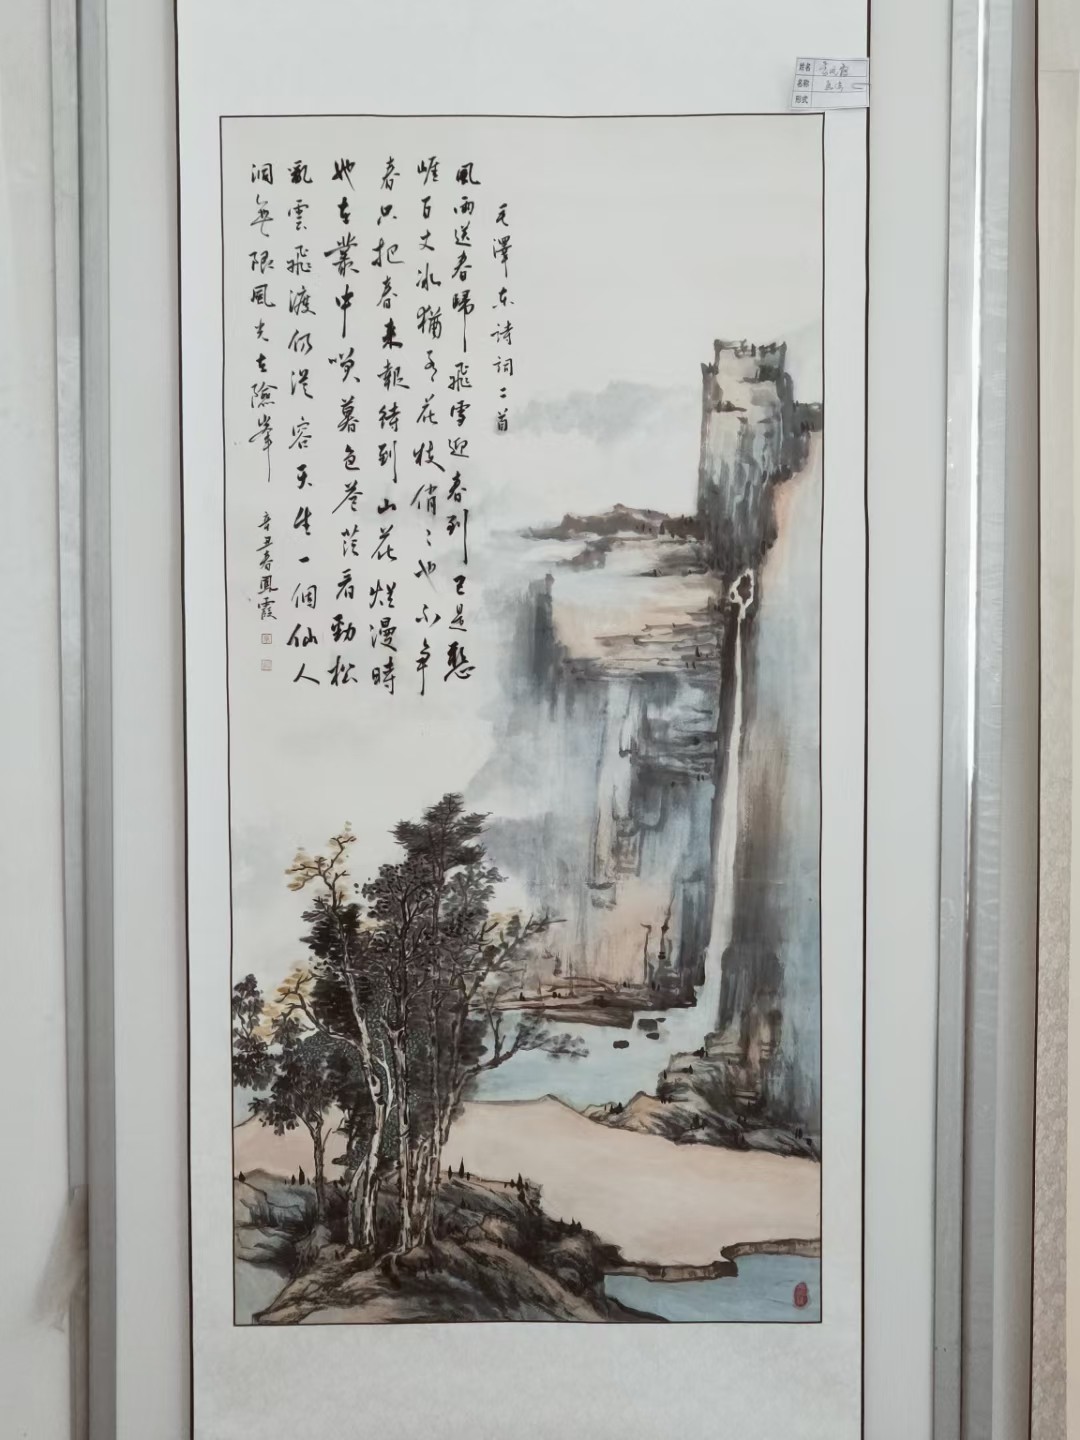 毛澤东诗词二首
風雨送春歸飛雪迎春到已是懸
崖百丈冰猶有花枝俏俏也不争
春只把春来報待到山花烂漫時
她在叢中笑暮色苍茫看勁松
亂雲飛渡仍從容天生一個仙人
洞無限風光在險峰
辛丑春鳳霞
姓名
名称
形式